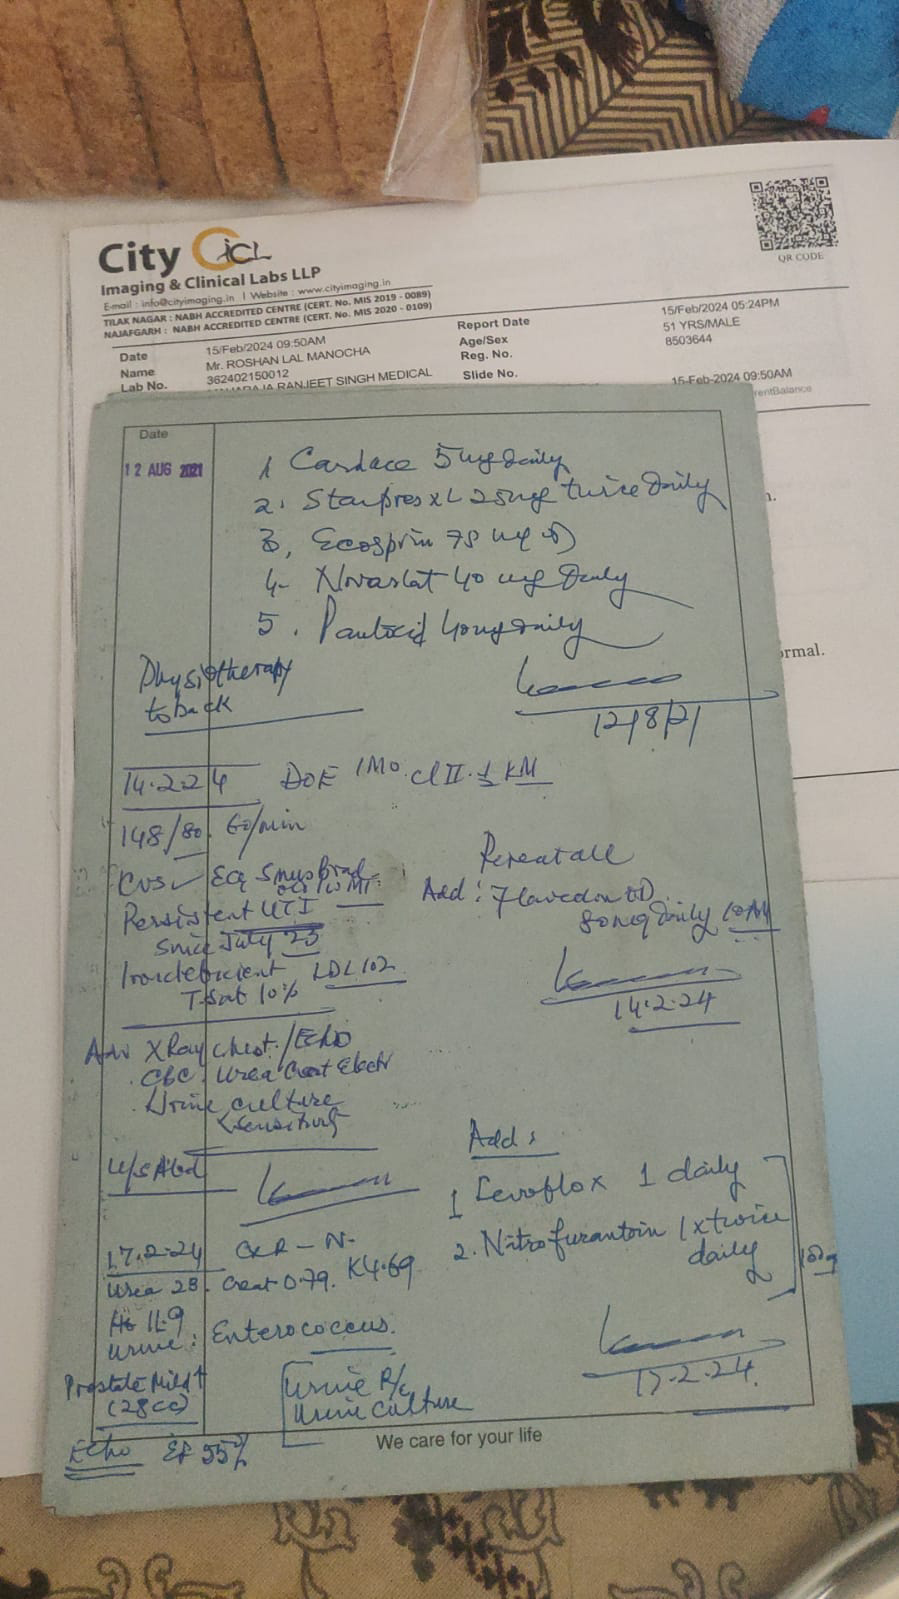 City iCL
Imaging & Clinical Labs LLP
E-mail : info@cityimaging.in | Website : www.cityimaging.in
TILAK NAGAR : NABH ACCREDITED CENTRE (CERT. No. MIS 2019 - 0089)
NAJAFGARH : NABH ACCREDITED CENTRE (CERT. No. MIS 2020 - 0109)
QR CODE
Date 15/Feb/2024 09:50AM Report Date 15/Feb/2024 05:24PM
Name Mr. ROSHAN LAL MANOCHA Age/Sex 51 YRS/MALE
Lab No. 362402150012 Reg. No. 8503644
RANJEET SINGH MEDICAL Slide No. 15-Feb-2024 09:50AM
rentBalance
rmal.
Date
12 AUG 2021
1 Cardace 5 mg daily
2. Starpres XL 25mg twice daily
3, Ecosprin 75 mg
4- Novastat 40 mg daily
5. Pantocid 40mg daily
Physiotherapy
to back
12/8/21
14.2.24 DOE 1Mo. Cl II. 1 KM
148/80. 60/min
Repeat all
CVS ✓ ECG Sinus Brad
Add: Flavedon OD
80mg daily 10AM
Persistent UTI
since July 23
Iron deficient LDL 102
T.Sat 10%
14.2.24
Adv X Ray chest/Echo
CBC Urea Creat Electr
Urine culture
Sensitivity
U/S Abd
Add:
1 Levoflox 1 daily
2. Nitrofurantoin 1x twice
daily
17.2.24 CXR - N-
Urea 28. Creat 0.79. K4.69
Hb 11.9
Urine: Enterococcus.
Prostate Mild ↑
(28cc)
Urine R/
Urine culture
17.2.24.
Echo EF 55%
We care for your life